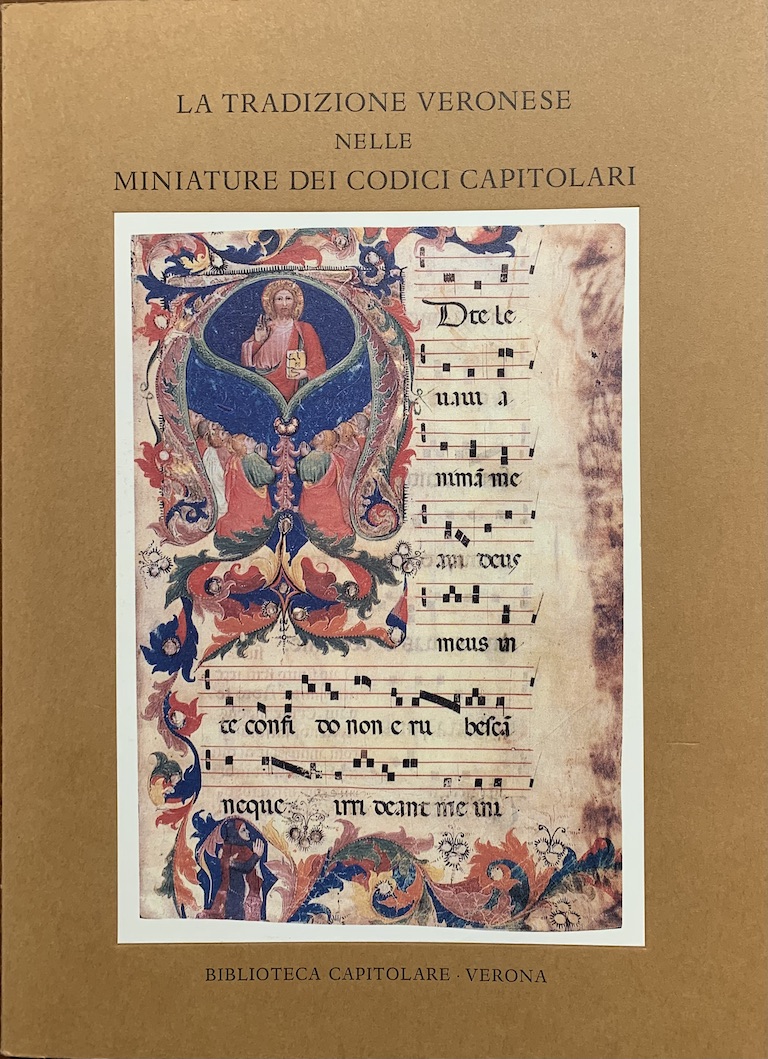 LA TRADIZIONE VERONESE
NELLE
MINIATURE DEI CODICI CAPITOLARI
D te le
uaui a
nimā me
am deus
meus in
te confi do non e ru bescā
neque irri deant me ini
BIBLIOTECA CAPITOLARE · VERONA